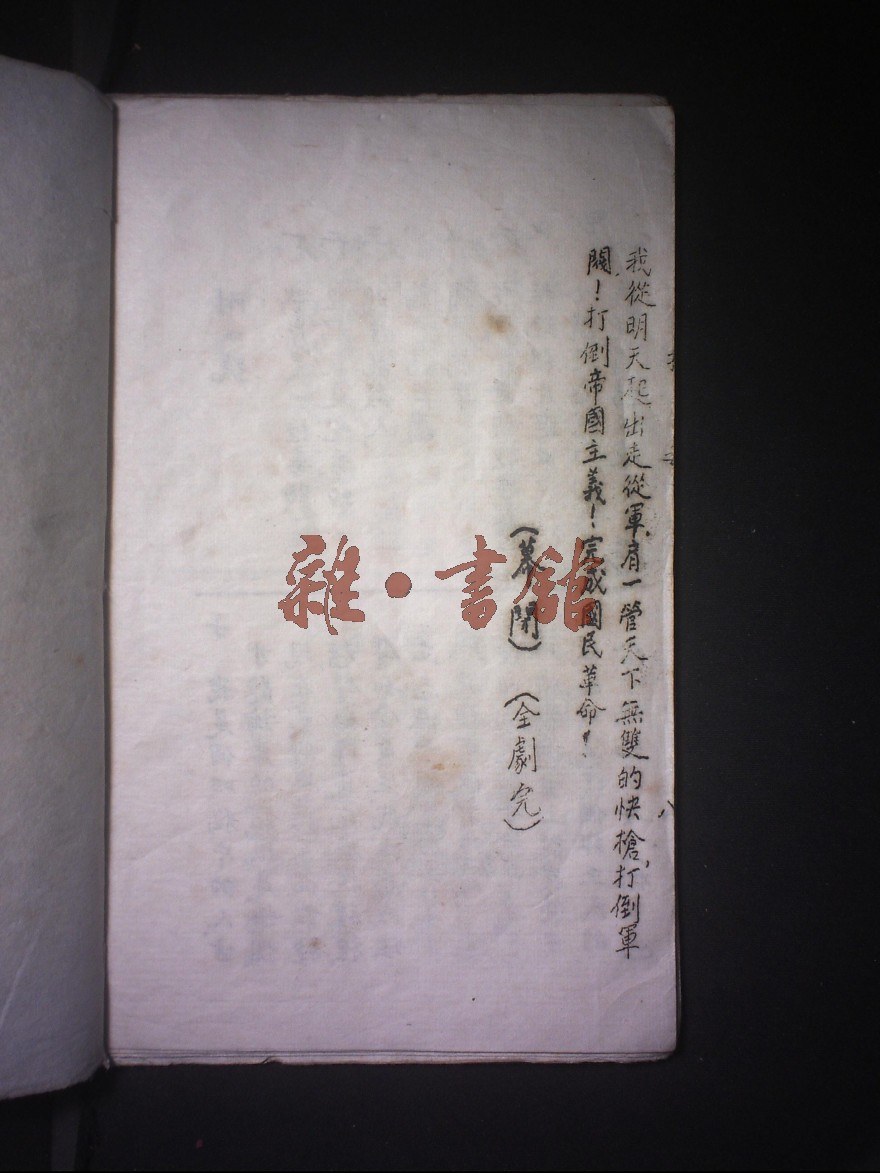 我從明天起出走從軍,肩一管天下無雙的快槍,打倒軍
閥!打倒帝國主義!完成國民革命!
(幕閉)(全劇完)
雜·書館